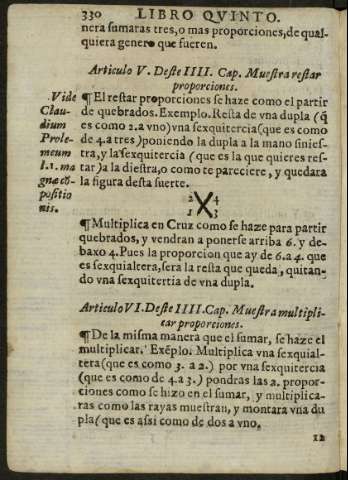 330 LIBRO QVINTO.
nera sumaras tres, o mas proporciones, de qual-
quiera genero que fueren.
Articulo V. Deste IIII. Cap. Muestra restar
proporciones.
Vide
Clau-
dium
Ptole-
meum
l. 1. ma
gnæ cõ-
positio
nis.
¶ El restar proporciones se haze como el partir
de quebrados. Exemplo. Resta de vna dupla (q̃
es como 2. a vno) vna sexquitercia (que es como
de 4. a tres) poniendo la dupla a la mano sinies-
tra, y la sexquitercia (que es la que quieres res-
tar) a la diestra, o como te pareciere, y quedara
la figura desta suerte.
2 X 4
1 3
¶ Multiplica en Cruz como se haze para partir
quebrados, y vendran a ponerse arriba 6. y de-
baxo 4. Pues la proporcion que ay de 6. a 4. que
es sexquialtera, sera la resta que queda, quitan-
do vna sexquitertia de vna dupla.
Articulo VI. Deste IIII. Cap. Muestra multipli-
car proporciones.
¶ De la misma manera que el sumar, se haze el
multiplicar. Exẽplo. Multiplica vna sexquial-
tera (que es como 3. a 2.) por vna sexquitercia
(que es como de 4. a 3.) pondras las 2. propor-
ciones como se hizo en el sumar, y multiplica-
ras como las rayas muestran, y montara vna du
pla (que es assi como de dos a vno.
12